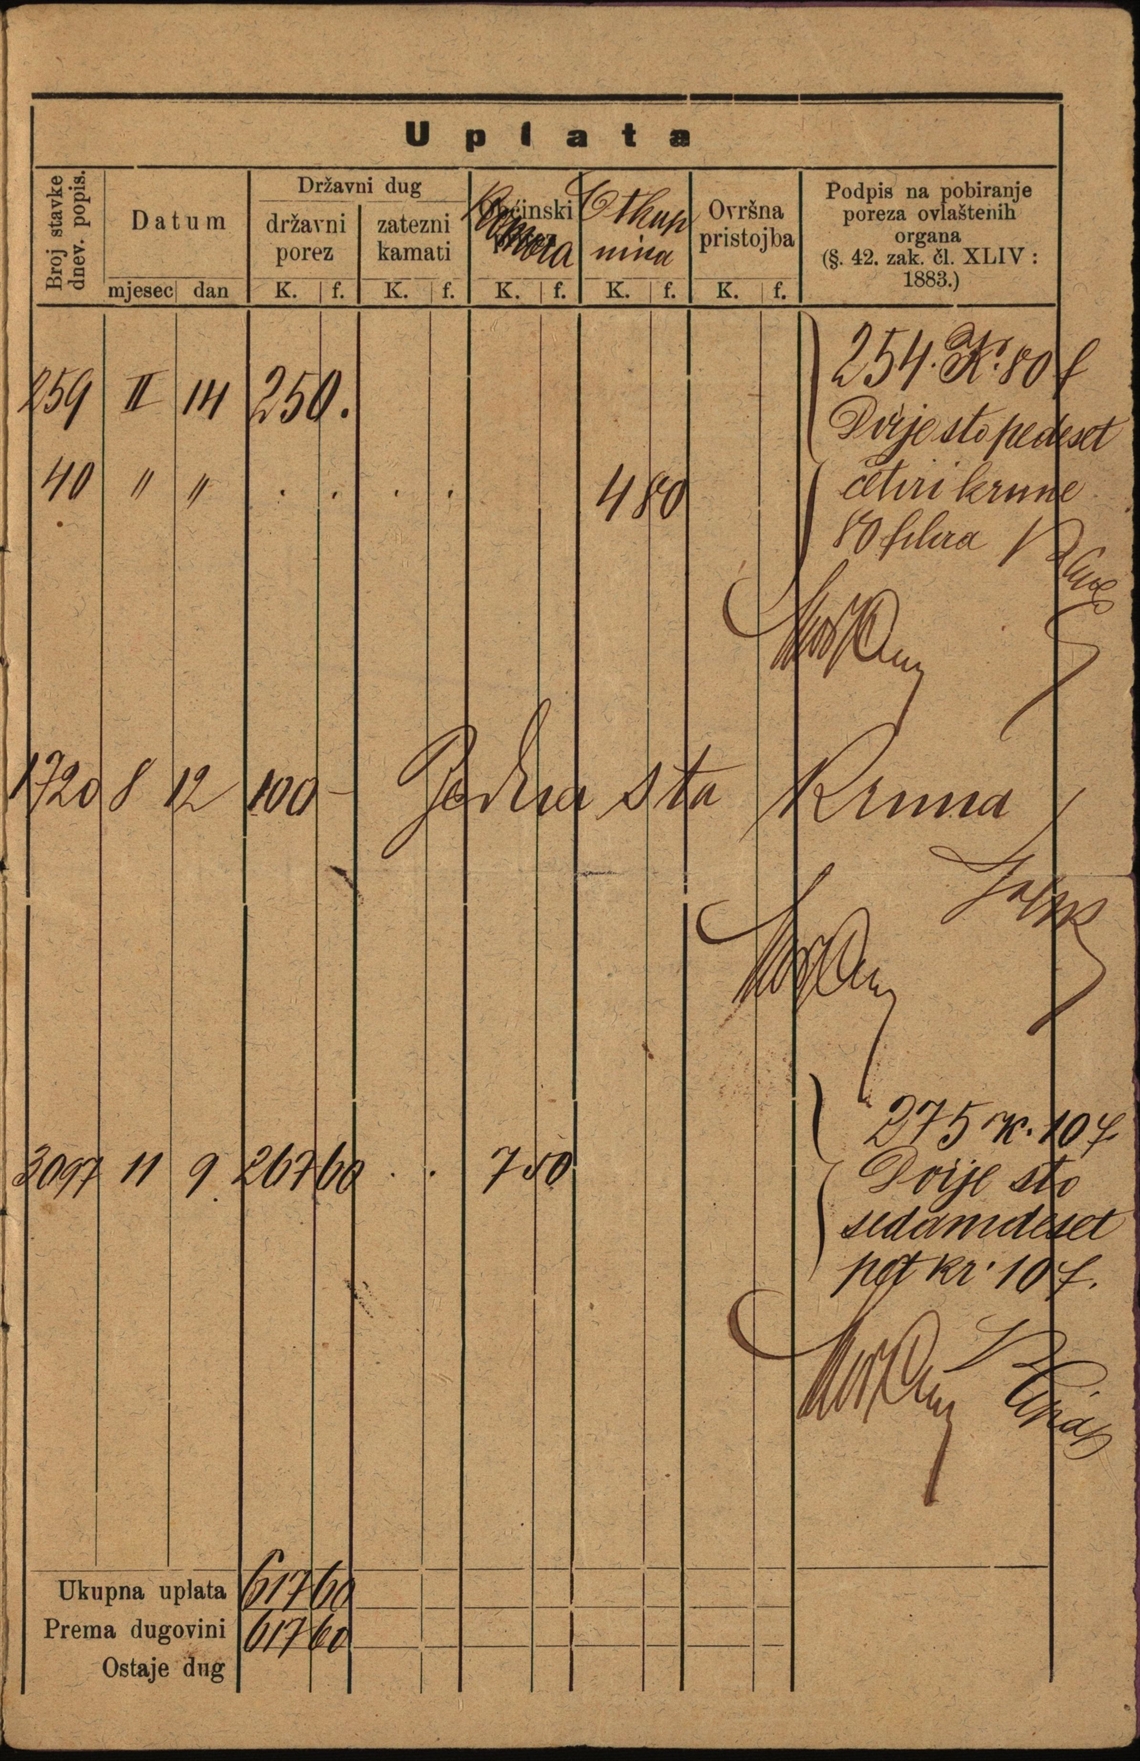 Uplata
Broj stavke dnev. popis.
Datum
mjesec dan
Državni dug
državni porez
K. f.
zatezni kamati
K. f.
Općinski
K. f.
Otkup
nina
K. f.
Ovršna pristojba
K. f.
Podpis na pobiranje
poreza ovlaštenih
organa
(§. 42. zak. čl. XLIV :
1883.)
259 II 14 250.
254. K. 80 f
Dvije sto pedeset
40 " " . . . . 4 80
četiri krune
80 filira
1720 8 12 100 - Jedna sto Kruna
3097 11 9 267 60 . . 7 50
275 K. 10 f.
Dvije sto
sedamdeset
pet kr. 10 f.
Ukupna uplata 617 60
Prema dugovini 617 60
Ostaje dug